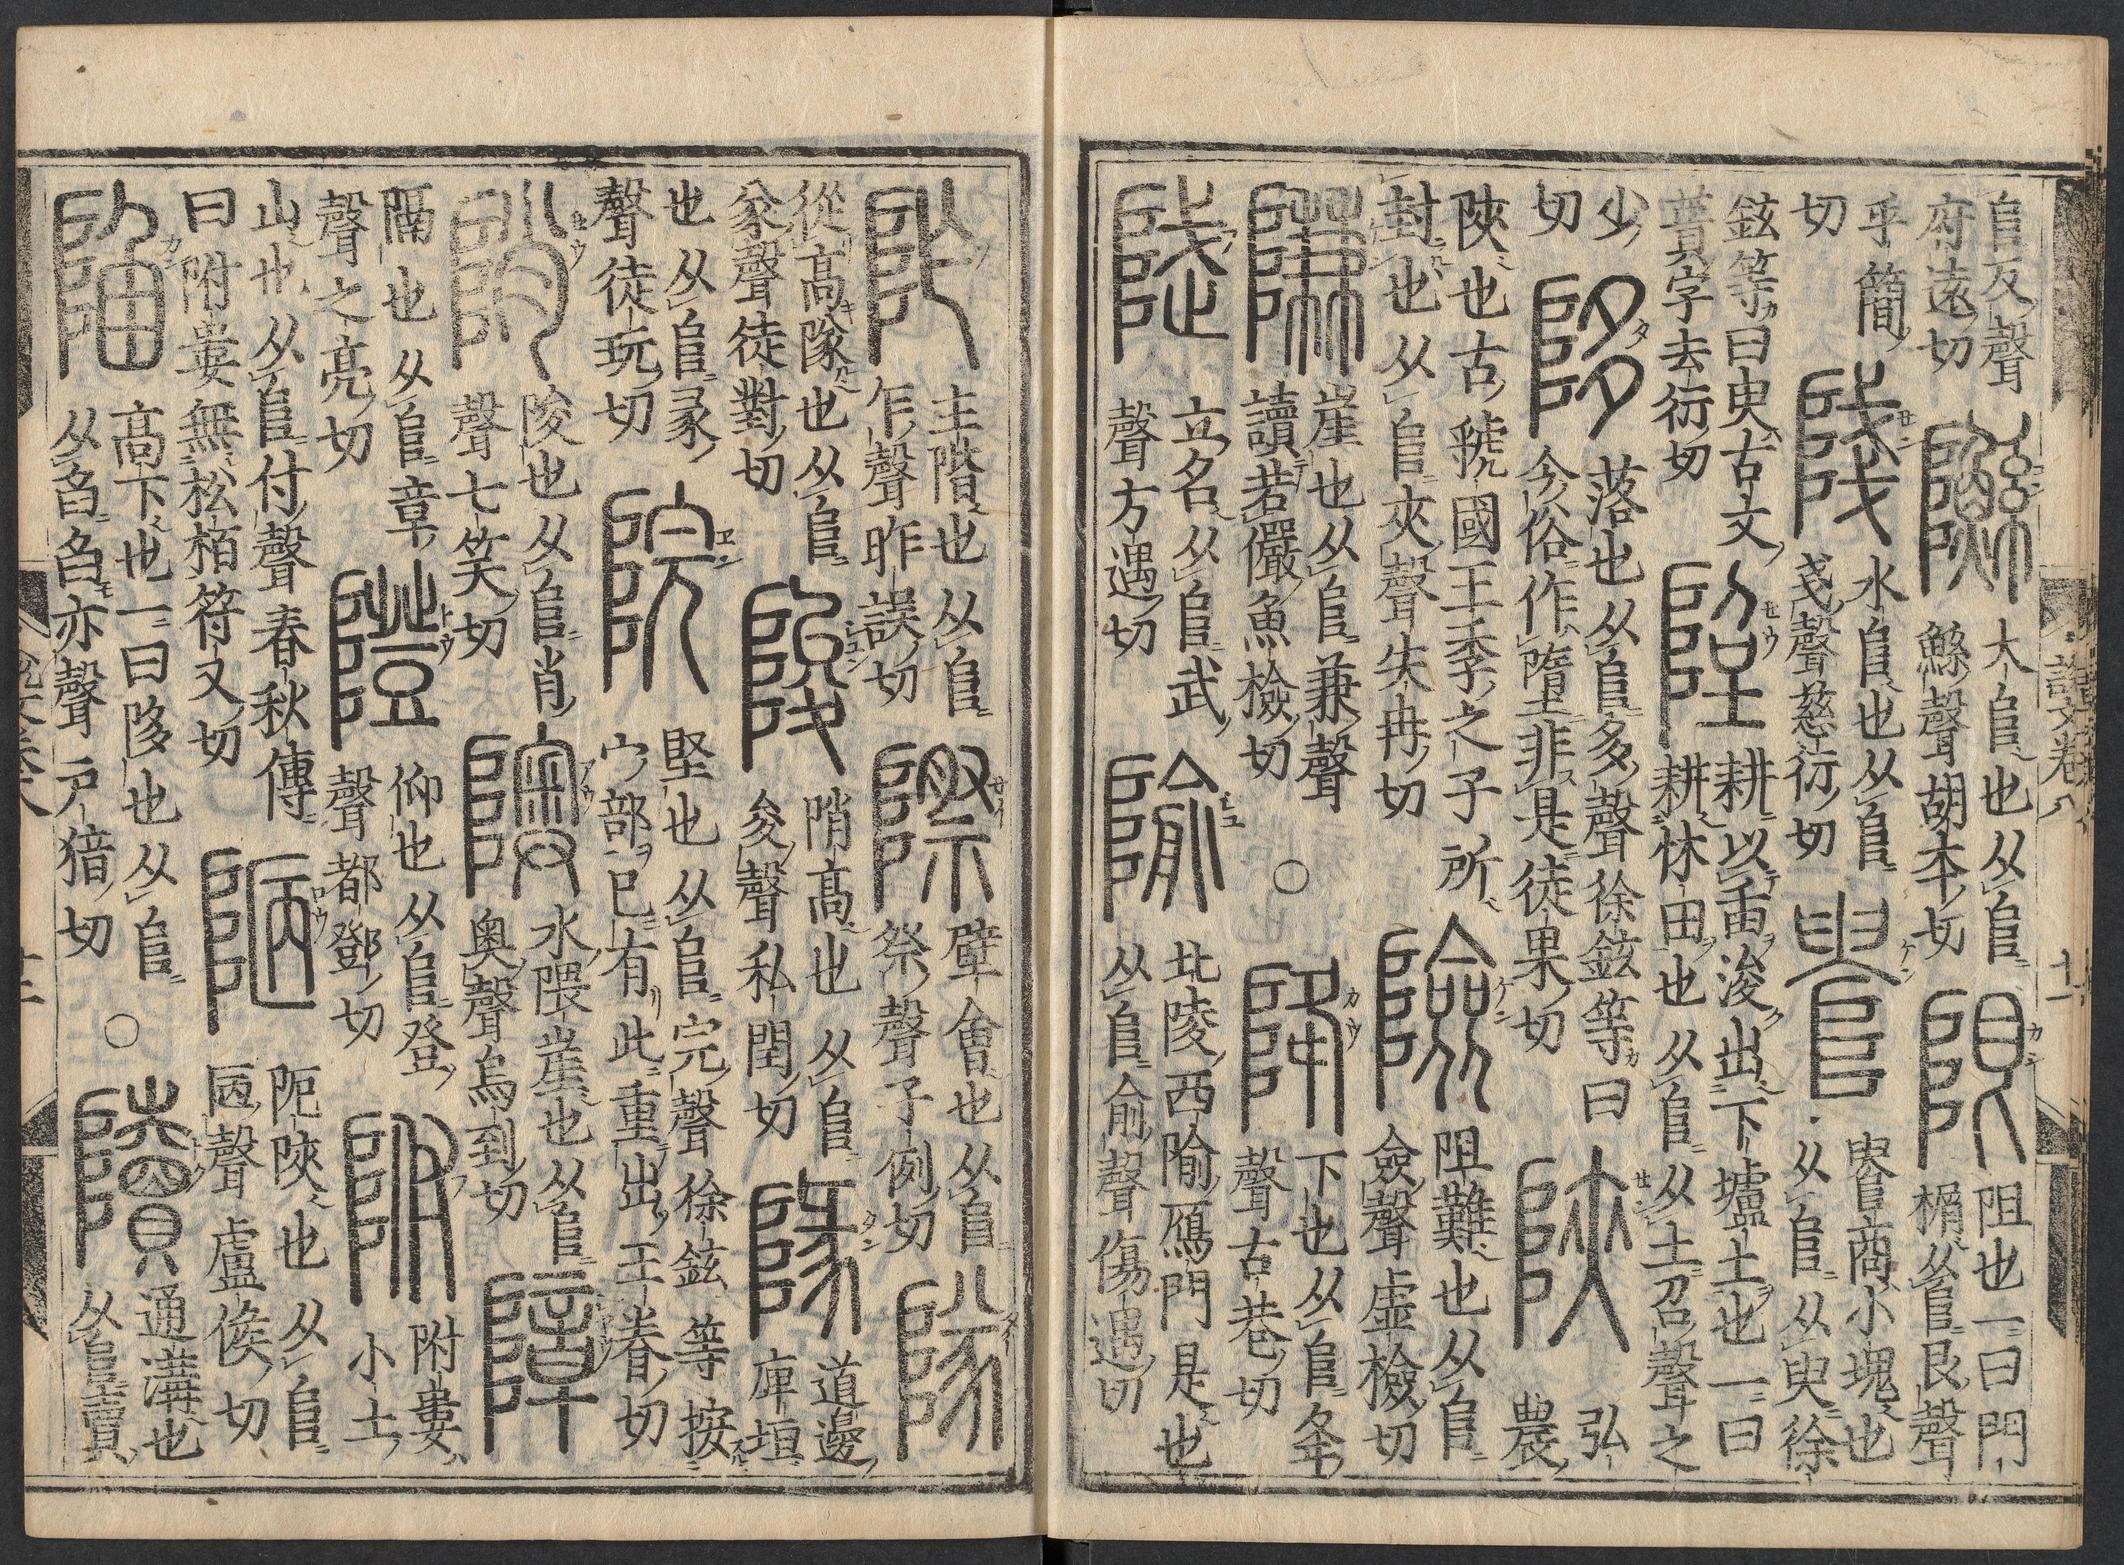 說文卷八
𨸏反聲
府遠切
大𨸏也从𨸏
鯀聲胡本切
限
阻也一曰門
榍从𨸏艮聲
乎簡
切
水𨸏也从𨸏
戔聲慈衍切
𠳋商小塊也
从𨸏从臾徐
鉉等曰臾古文
蕢字去衍切
耕以臿浚出下壚土也一曰
耕休田也从𨸏从土召聲之
少
切
陊
落也从𨸏多聲徐鉉等曰
今俗作墮非是徒果切
陝
弘
農
陝也古虢國王季之子所
封也从𨸏夾聲失冉切
險
阻難也从𨸏
僉聲虛檢切
隒
崖也从𨸏兼聲
讀若儼魚檢切
○
降
下也从𨸏夅
聲古巷切
陚
立名从𨸏武
聲方遇切
隃
北陵西隃鴈門是也
从𨸏俞聲傷遇切
阼
主階也从𨸏
乍聲昨誤切
際
壁會也从𨸏
祭聲子例切
隊
從高隊也从𨸏
㒸聲徒對切
陖
陗高也从𨸏
夋聲私閏切
道邊
庳垣
也从𨸏彖
聲徒玩切
院
堅也从𨸏完聲徐鉉等按
宀部已有此重出王眷切
陗
陵也从𨸏肖
聲七笑切
隩
水隈崖也从𨸏
奧聲烏到切
障
隔也从𨸏章
聲之亮切
隥
仰也从𨸏登
聲都鄧切
附
附婁
小土
山也从𨸏付聲春秋傳
曰附婁無松栢符又切
陋
阨陝也从𨸏
㔷聲盧候切
陷
高下也一曰陊也从𨸏
从臽臽亦聲戶猪切
○
通溝也
从𨸏賣